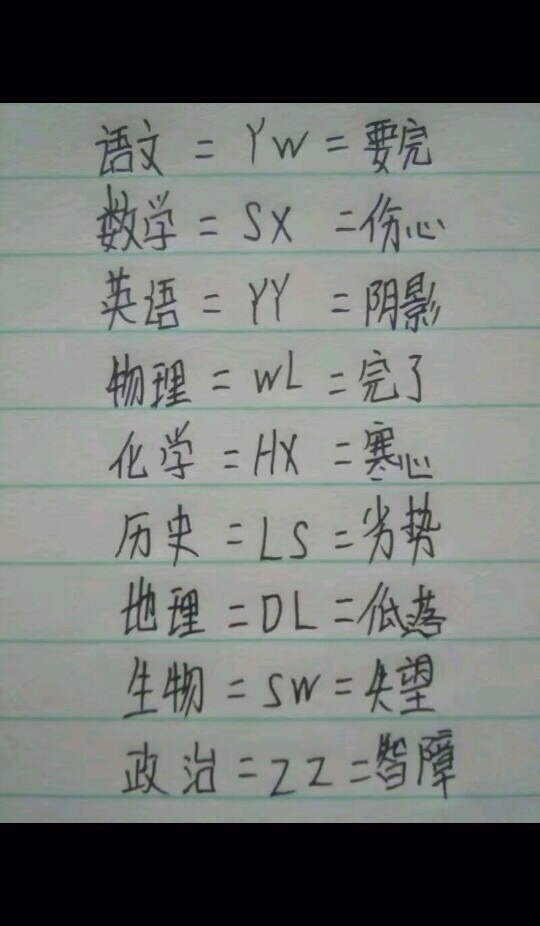 语文 = YW = 要完
数学 = SX = 伤心
英语 = YY = 阴影
物理 = WL = 完了
化学 = HX = 寒心
历史 = LS = 劣势
地理 = DL = 低落
生物 = SW = 失望
政治 = ZZ = 智障